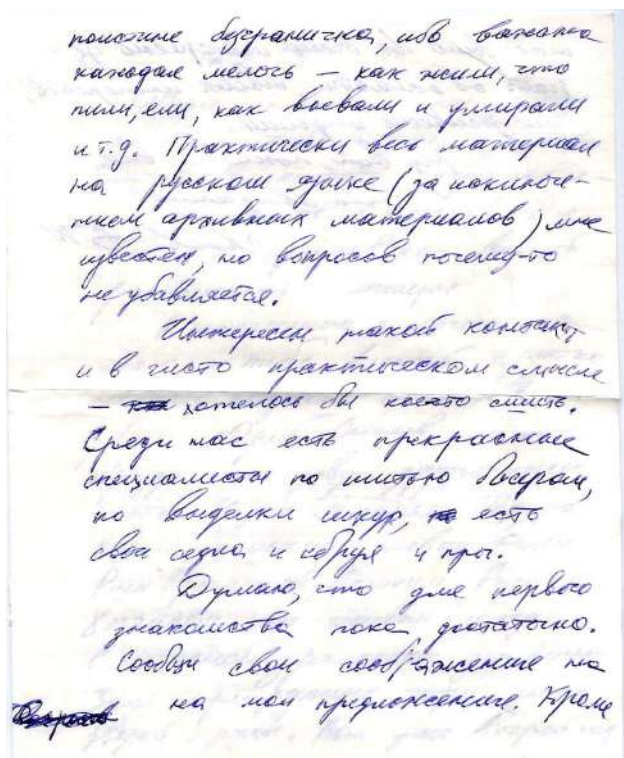 поистине безгранична, ибо важна
каждая мелочь – как жили, что
пили, ели, как воевали и умирали
и т.д. Практически весь материал
на русском языке (за исключе-
нием архивных материалов) мне
известен, но вопросов почему-то
не убавляется.
Интересен такой контакт
и в чисто практическом смысле
– хотелось бы кое-что сшить.
Среди нас есть прекрасные
специалисты по шитью бисером,
по выделки шкур, есть
свои седла и сбруя и проч.
Думаю, что для первого
знакомства пока достаточно.
Сообщи свои соображение на
на мои предложение. Кроме